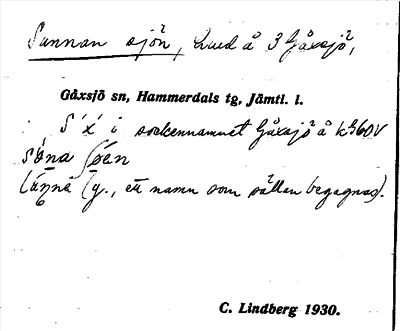 Sunnan sjön, hued å 3 Gåxsjö,
Gåxsjö sn, Hammerdals tg, Jämtl. l.
S' x' i sockennamnet Gåxsjö å k360V
(y., ett namn som sällan begagnas).
C. Lindberg 1930.